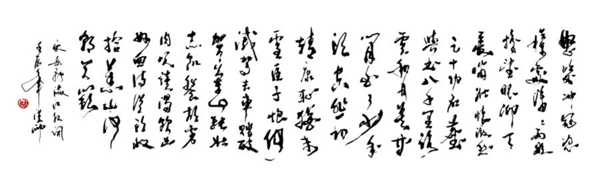 怒发冲冠凭
栏处潇潇雨歇
抬望眼仰天
长啸壮怀激烈
三十功名尘
与土八千里路
云和月莫等
闲白了少年
头空悲切
靖康耻犹未
雪臣子恨何时
灭驾长车踏破
贺兰山缺壮
志饥餐胡虏
肉笑谈渴饮匈
奴血待从头收
拾旧山河
朝天阙
岳飞满江红词
壬辰年